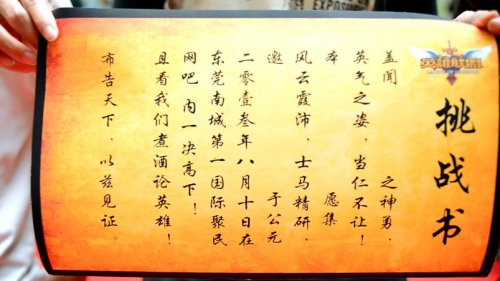 挑战书
英雄联盟
盖闻 之神勇，
英气之姿，当仁不让！
本 愿集
风云霞沛，士马精研，
邀 于公元
二零壹叁年八月十日在
东莞南城第一国际聚民
网吧 内一决高下！
且看我们煮酒论英雄！
布告天下，以兹见证